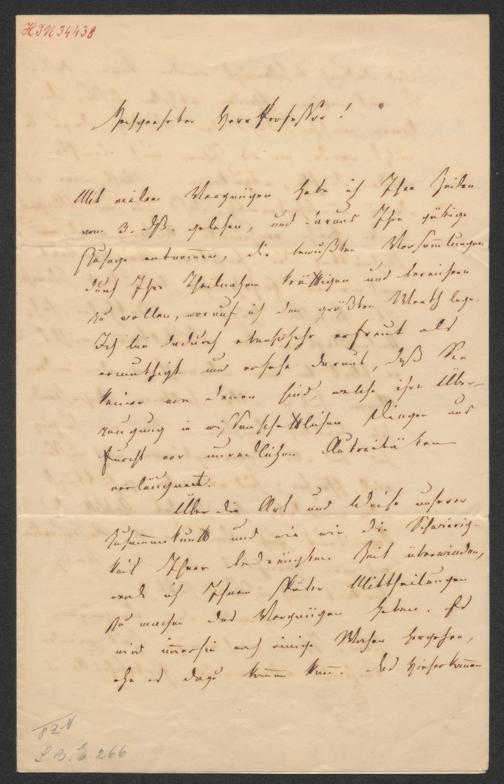 HIN 34438
Hochgeehrter Herr Professor!
Mit vielem Vergnügen habe ich Ihre Zeilen
vom 3. dß. gelesen, und daraus Ihre gütige
Zusage entnommen, die bewußten Versammlungen
durch Ihre Theilnahme kräftigen und bereichern
zu wollen, worauf ich den größten Werth lege.
Ich bin dadurch ebensosehr erfreut als
ermuthigt und ersehe daraus, daß Sie
keiner von denen sind, welche ihre Über-
zeugung in wissenschaftlichen Dingen aus
Furcht vor unredlichen Autoritäten
verläugnet.
Über die Art und Weise unserer
Zusammenkunft und wie wir die Schwierig-
keit Ihrer bedrängten Zeit überwinden,
werde ich Ihnen später Mittheilungen
zu machen das Vergnügen haben. Es
wird immerhin noch einige Wochen hergehen,
ehe es dazu kommen kann. Das Hieherkommen
L. B. E. 266